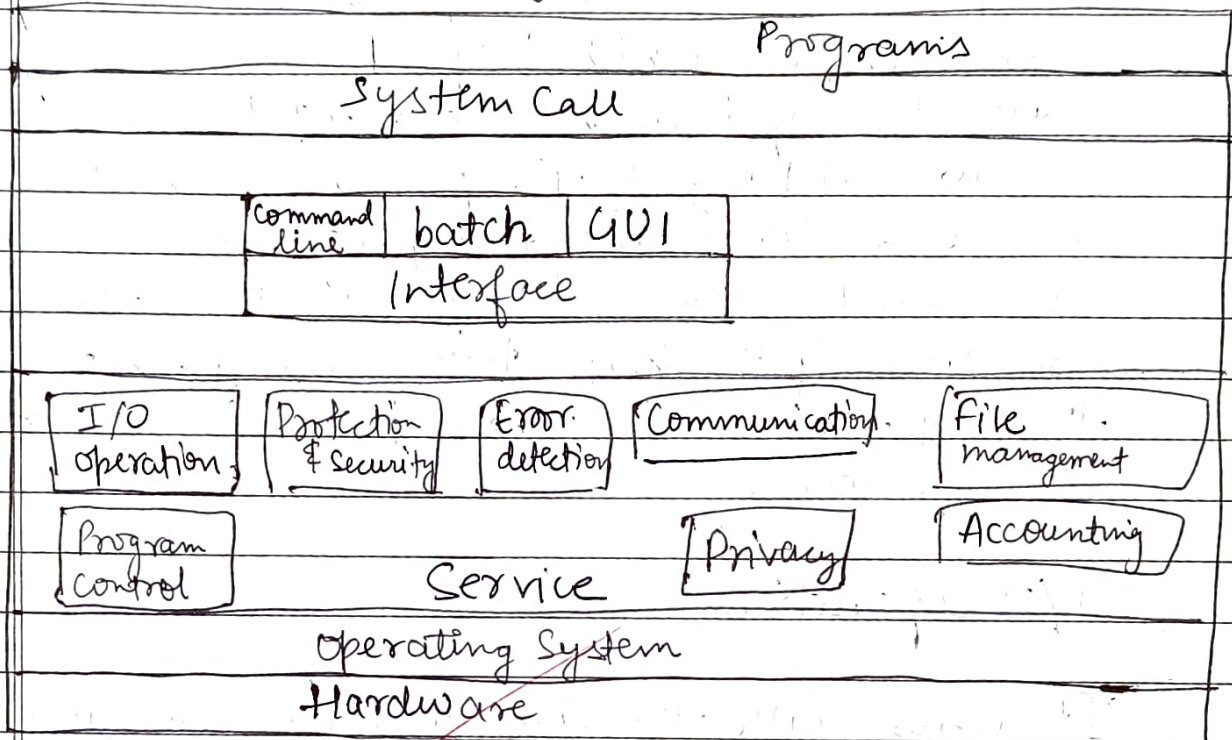 Programs
System Call
Command line
batch
GUI
Interface
I/O operation
Protection & Security
Error detection
Communication
File management
Program control
Service
Privacy
Accounting
Operating System
Hardware